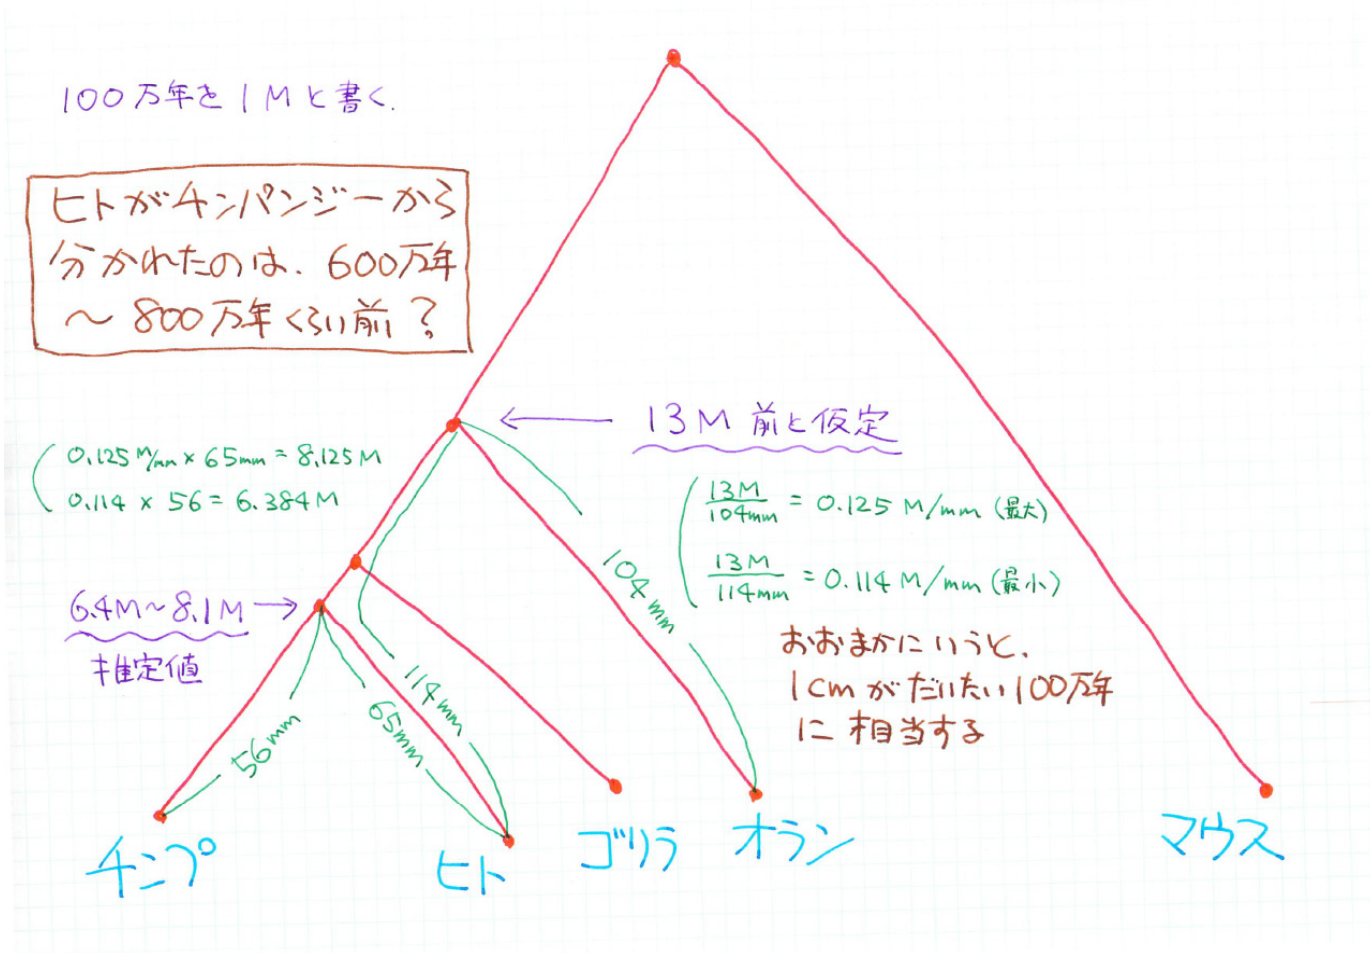 100万年を1Mと書く.
ヒトがチンパンジーから
分かれたのは、600万年
〜800万年くらい前？
13M 前と仮定
0.125 M/mm × 65mm = 8.125M
0.114 × 56 = 6.384M
13M/104mm = 0.125 M/mm (最大)
13M/114mm = 0.114 M/mm (最小)
104mm
6.4M〜8.1M
推定値
おおまかにいうと、
1cmがだいたい100万年
に相当する
56mm
65mm
114mm
チンプ
ヒト
ゴリラ
オラン
マウス